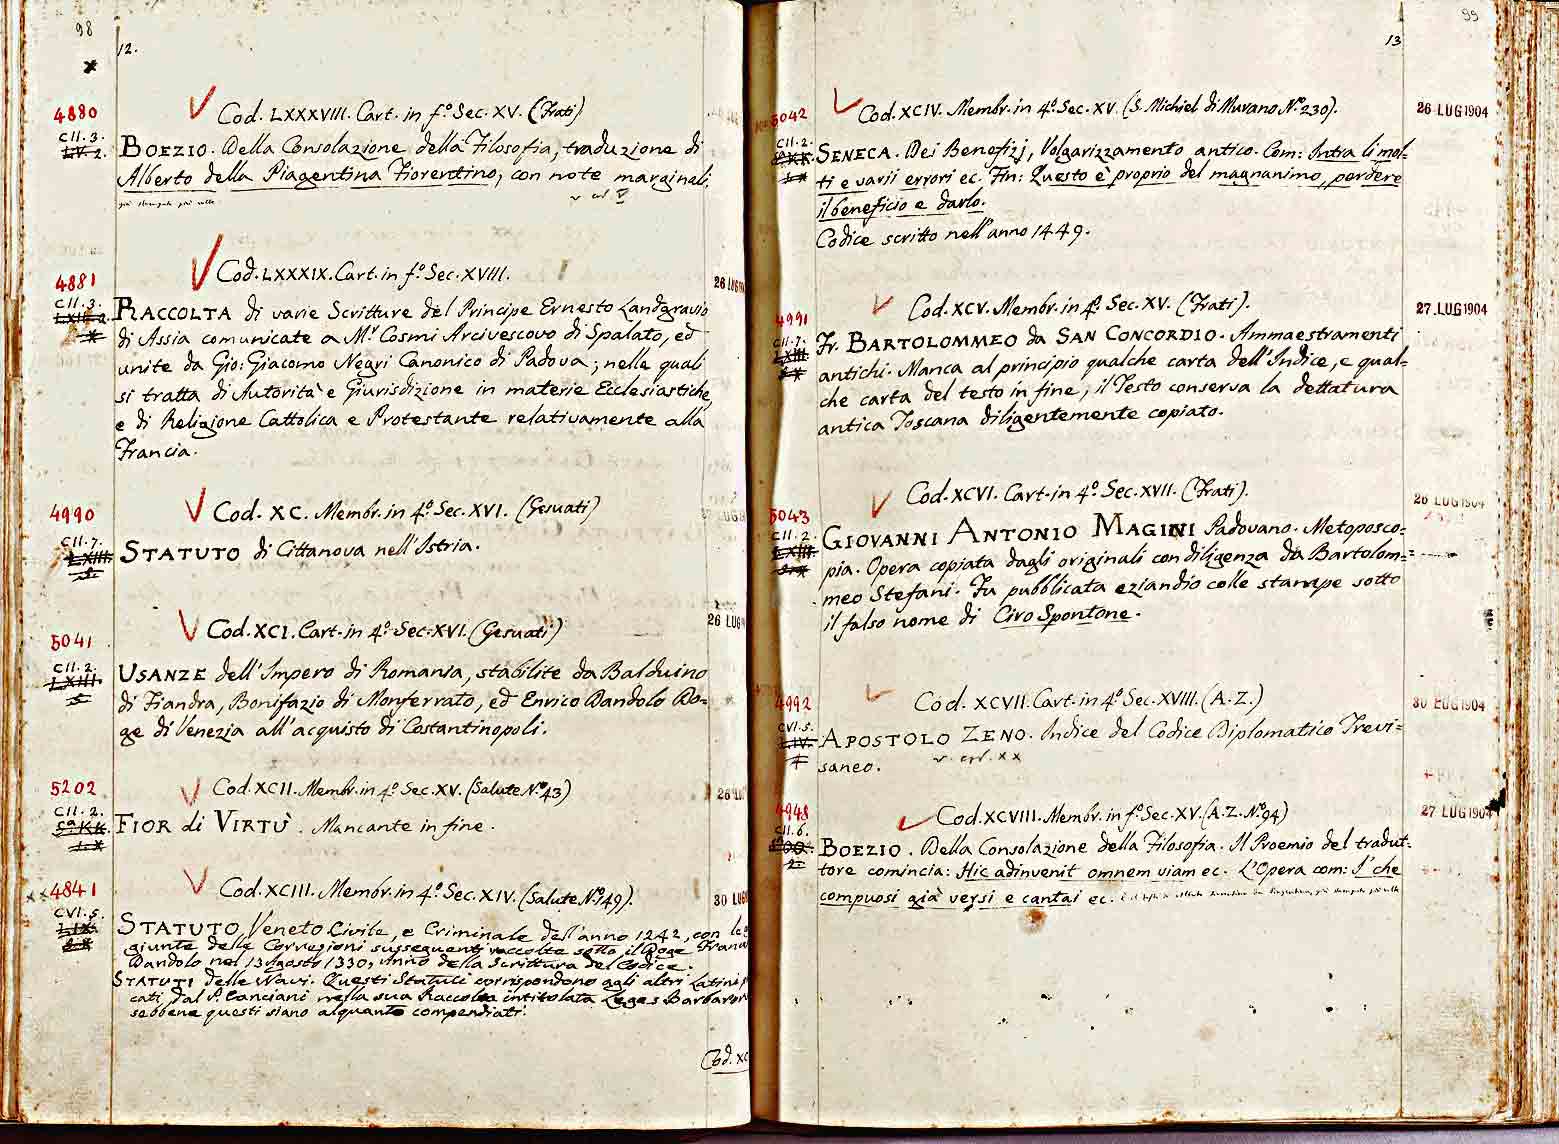 98
12.
4880
Cod. LXXXVIII. Cart. in f.º Sec. XV. (Frati)
CII. 3.
BOEZIO. Della Consolazione della Filosofia, traduzione di
Alberto della Piagentina Fiorentino, con note marginali.
4881
Cod. LXXXIX. Cart. in f.º Sec. XVIII.
26 LUG
CII. 3.
RACCOLTA di varie Scritture del Principe Ernesto Landgravio
di Assia comunicate a Mr. Cosmi Arcivescovo di Spalato, ed
unite da Gio: Giacomo Negri Canonico di Padova; nelle quali
si tratta di Autorità e Giurisdizione in materie Ecclesiastiche,
e di Religione Cattolica e Protestante relativamente alla
Francia.
4990
Cod. XC. Membr. in 4.º Sec. XVI. (Gesuati)
CII. 7.
STATUTO di Cittanova nell'Istria.
5041
Cod. XCI. Cart. in 4.º Sec. XVI. (Gesuati)
26 LUG
CII. 2.
USANZE dell'Impero di Romania, stabilite da Balduino
di Fiandra, Bonifazio di Monferrato, ed Enrico Dandolo Do-
ge di Venezia all'acquisto di Costantinopoli.
5202
Cod. XCII. Membr. in 4.º Sec. XV. (Salute N.º 43)
CII. 2.
FIOR di VIRTÙ. Mancante in fine.
4841
Cod. XCIII. Membr. in 4.º Sec. XIV. (Salute N.º 149).
30 LUG
CVI. 5.
STATUTO Veneto Civile, e Criminale dell'anno 1242, con le
giunte delle Correzioni susseguenti raccolte sotto il Doge Fran
Dandolo nel 13 Agosto 1330, anno della Scrittura del Codice.
STATUTI delle Navi. Questi Statuti corrispondono agli altri Latini
cati dal P. Canciani nella sua Raccolta intitolata Leges Barbaror
sebbene questi siano alquanto compendiati.
Cod. XC
99
13
5042
Cod. XCIV. Membr. in 4.º Sec. XV. (S. Michiel di Murano N.º 230).
26 LUG 1904
CII. 2.
SENECA. Dei Benefizj, Volgarizzamento antico. Com: Intra li mol-
ti e varii errori ec. Fin: Questo è proprio del magnanimo, perdere
il beneficio e darlo.
Codice scritto nell'anno 1449.
4991
Cod. XCV. Membr. in 4.º Sec. XV. (Frati).
27 LUG 1904
CII. 7.
Fr. BARTOLOMMEO da SAN CONCORDIO. Ammaestramenti
antichi. Manca al principio qualche carta dell'Indice, e qual-
che carta del testo in fine; il Testo conserva la dettatura
antica Toscana diligentemente copiato.
5043
Cod. XCVI. Cart. in 4.º Sec. XVII. (Frati).
26 LUG 1904
CII. 2.
GIOVANNI ANTONIO MAGINI Padovano. Metoposco-
pia. Opera copiata dagli originali con diligenza da Bartolom-
meo Stefani. Fu pubblicata eziandio colle stampe sotto
il falso nome di Ciro Spontone.
4992
Cod. XCVII. Cart. in 4.º Sec. XVIII. (A. Z.)
30 LUG 1904
CVI. 5.
APOSTOLO ZENO. Indice del Codice Diplomatico Trevi-
saneo.
4948
Cod. XCVIII. Membr. in f.º Sec. XV. (A. Z. N.º 94)
27 LUG 1904
CII. 6.
BOEZIO. Della Consolazione della Filosofia. Il Proemio del tradut-
tore comincia: Hic adinvenit omnem viam ec. L'Opera com: I' che
compuosi già versi e cantai ec.